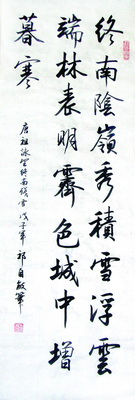 终南陰嶺秀積雪浮雲
端林表明霽色城中增
暮寒
唐祖詠望終南餘雪戊子年祁自敏筆